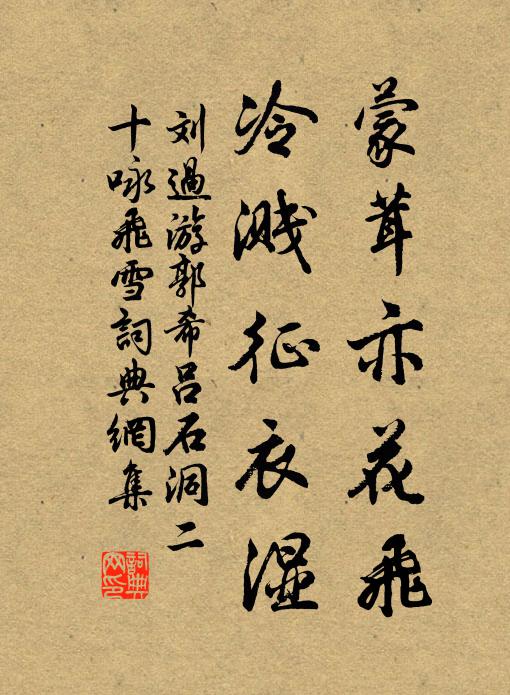 蒙茸亦花飛
冷溅征衣湿
刘過游郭希吕石洞二
十咏飛雪詞典網集
詞典網印